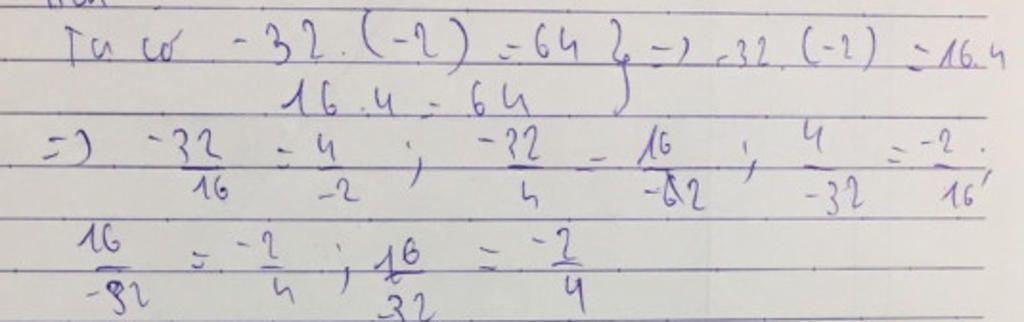 Ta có -32.(-2) = 64 } => -32.(-2) = 16.4
16.4 = 64
=> -32/16 = 4/-2 ; -32/4 = 16/-2 ; 4/-32 = -2/16 ;
16/-32 = -2/4 ; 16/32 = -2/4